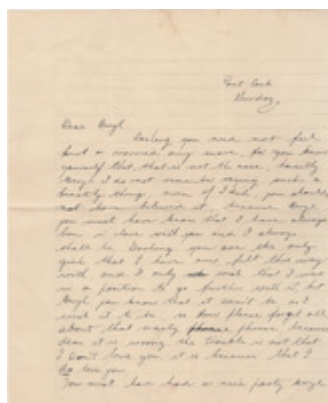 Dear Beryl,
Darling you need not feel
hurt or worried any more, for you know
yourself that, that is not the case, honestly
Beryl I do not remember saying such a
beastly thing, even if I did, you should
not have believed it, because Beryl
you must have known that I have always
been in love with you and I always
shall be. Darling you are the only
girl that I have ever felt this way
with, and I only wish that I was
in a position to go further with it, but
Beryl you know that it can't be as I
wish it to be, so please forget all
about that nasty phrase, because
dear it is wrong, the trouble is not that
I don't love you, it is because that I
do love you.
You must have had a nice party Beryl